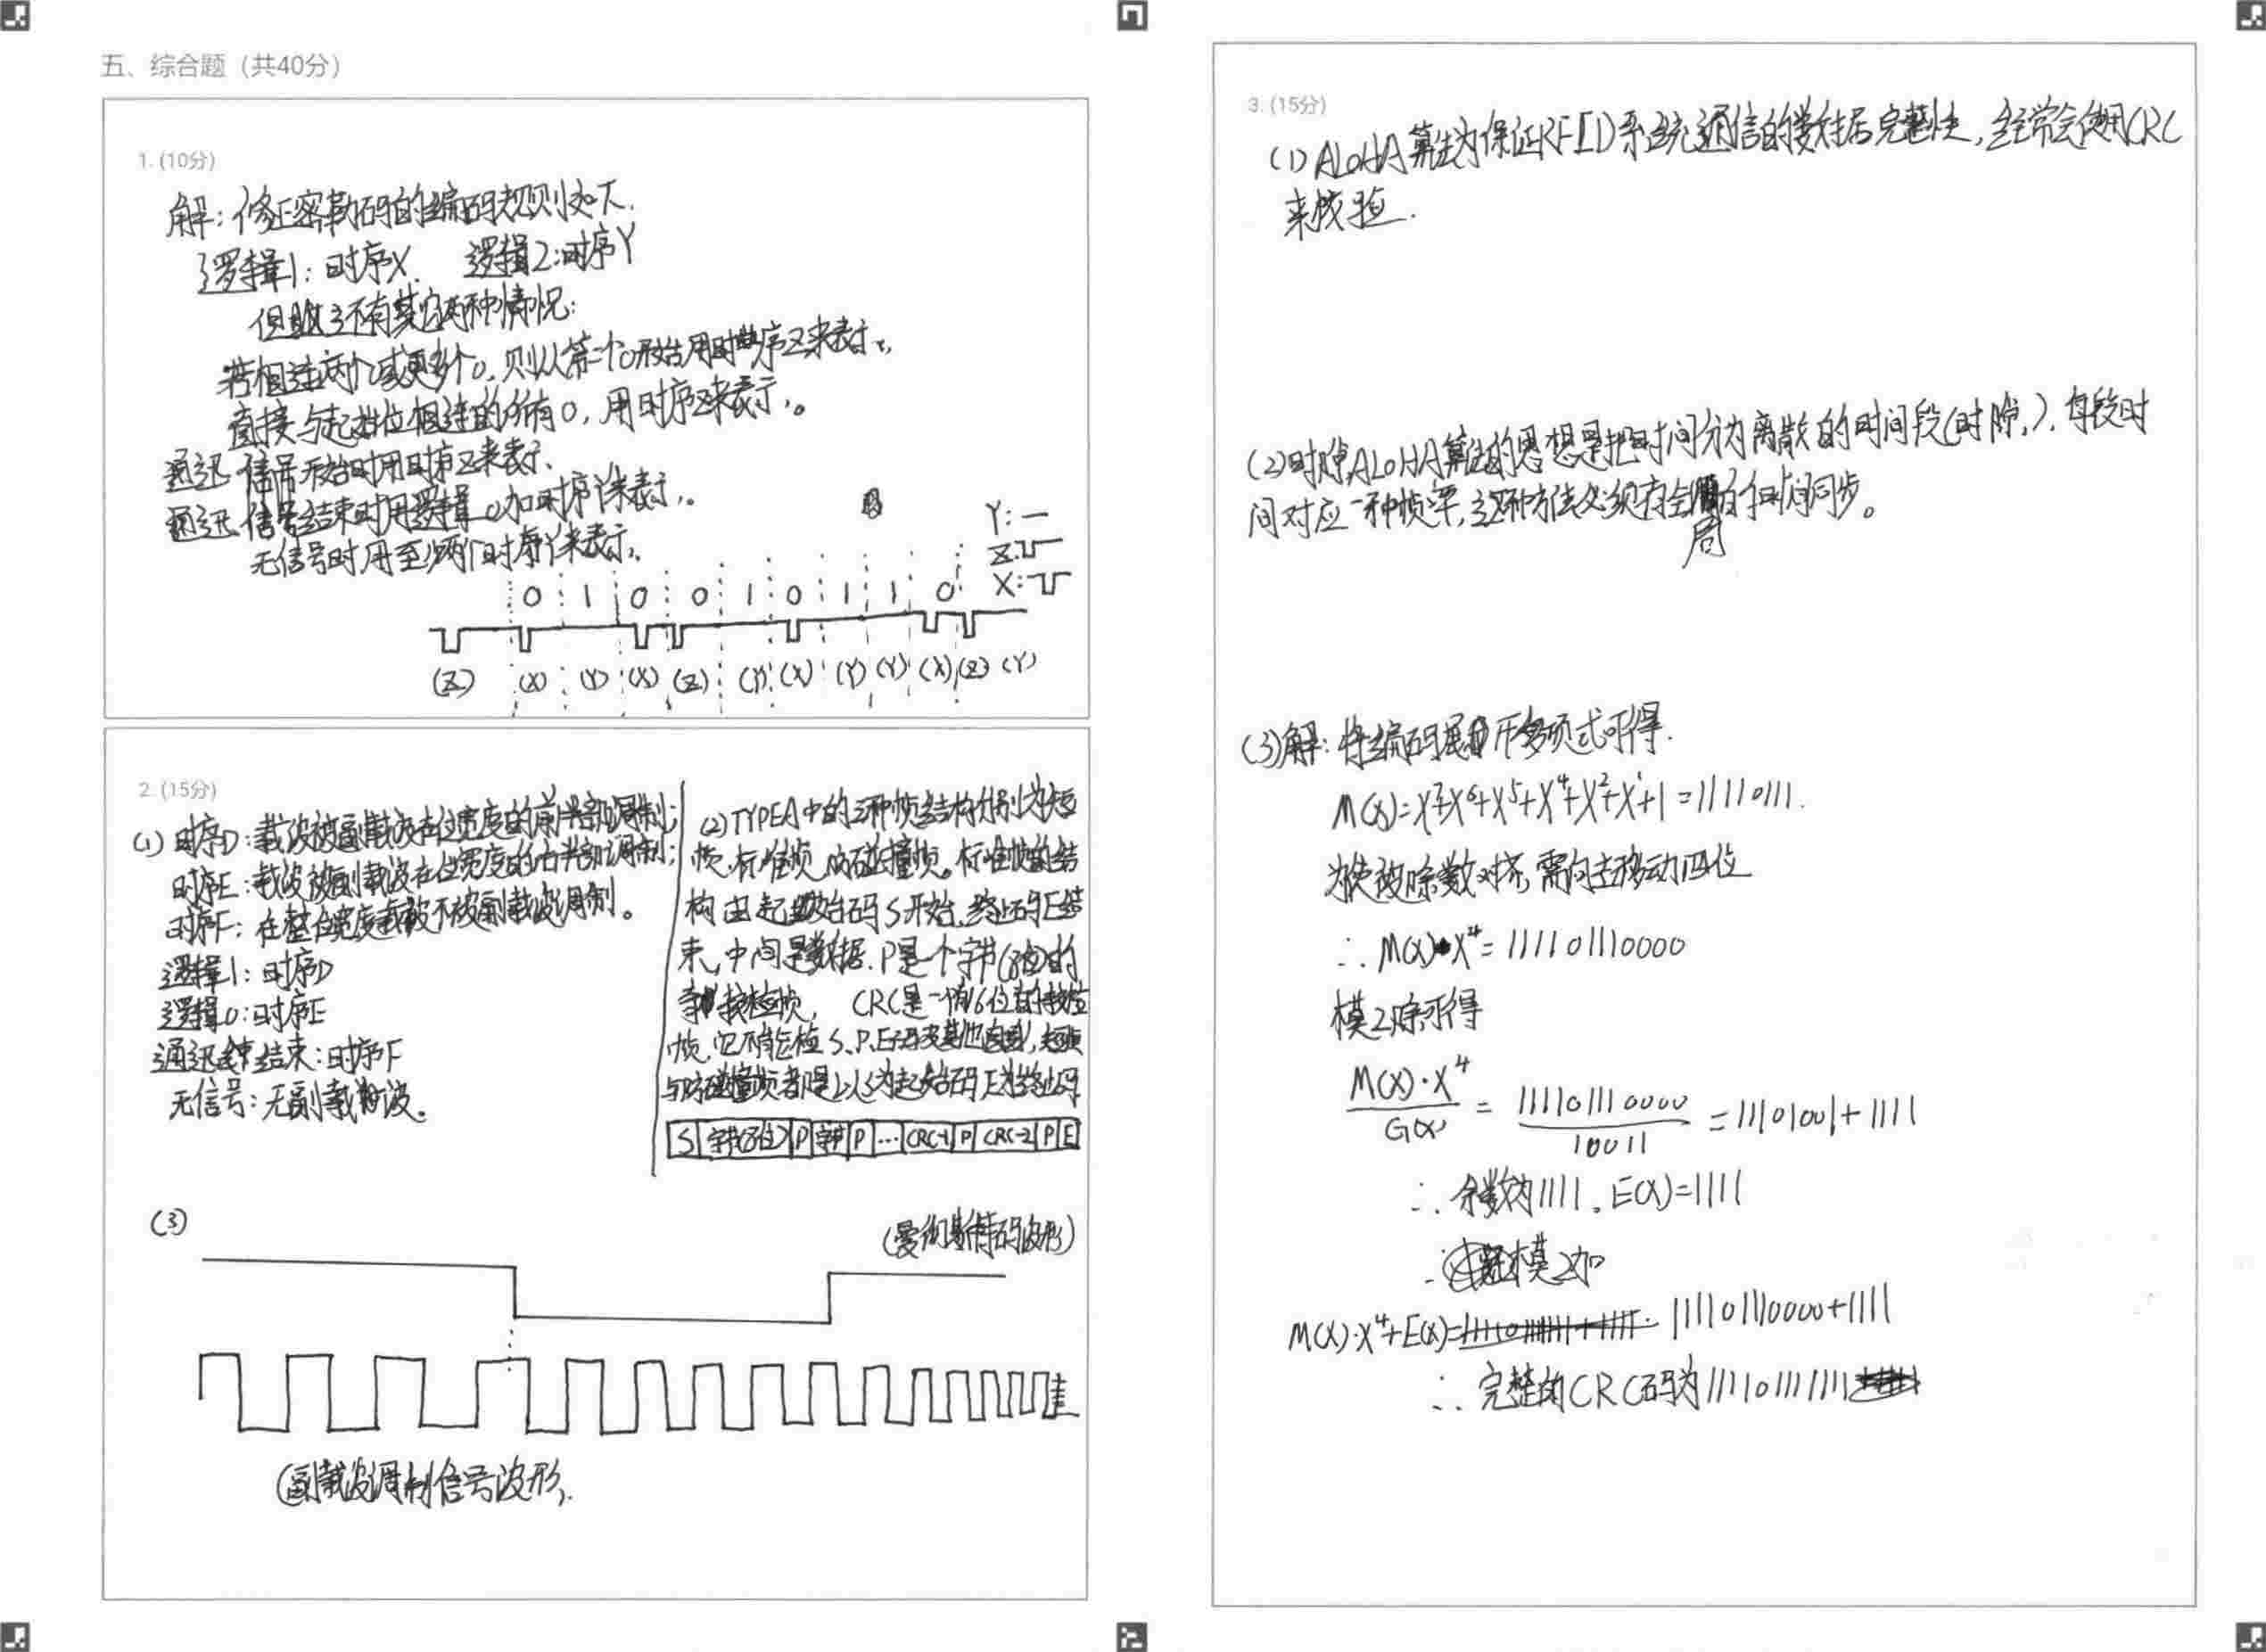 五、综合题（共40分）
1. (10分)
解：修正密勒码的编码规则如下.
逻辑1：时序X. 逻辑2:时序Y
但 还有其它两种情况：
若相连两个或更多个0，则从第二个0开始用时序Z来表示，
直接与起始位相连的所有0，用时序Z来表示，。
通迅信号开始时用时序Z来表示、
通迅信号结束时用逻辑0加时序Y来表示，。
无信号时用至少两个时序Y来表示、
Y：
Z：
X：
0 1 0 0 1 0 1 1 0
(Z) (X) (Y) (X) (Z) (Y) (X) (Y) (Y) (X) (Z) (Y)
2. (15分)
(1) 时序D：载波被副载波在位宽度的前半部调制；
时序E：载波被副载波在位宽度的右半部调制；
时序F：在整位宽度载波不被副载波调制。
逻辑1：时序D
逻辑0：时序E
通迅结束：时序F
无信号：无副载波。
(2) TYPEA中的三种帧结构分别为短
帧、标准帧、 碰撞帧。标准帧的结
构由起始码S开始，终止码E结
束，中间是数据．P是一个字节(8位)的
奇校检帧， CRC是一个16位的校检
帧，它不能检S、P、E 及其他 ，短帧
与防碰撞帧都是以S为起始码E为终止码
S 字节(8位) P 字节 P … CRC-1 P CRC-2 P E
(3)
(曼彻斯特码波形)
(副载波调制信号波形)
3. (15分)
(1) ALOHA算法为保证RFID系统通信的数据完整性，经常会使用CRC
来校验．
(2)时隙ALOHA算法的思想是把时间分为离散的时间段(时隙，)，每段时
间对应一种帧率，这种方法必须有全局的时间同步。
(3)解：将编码展开多项式可得．
M(X)=X⁷+X⁶+X⁵+X⁴+X²+X¹+1=11110111．
为使被除数对齐，需向左移动四位
∴ M(X)·X⁴=111101110000
模2除可得
M(X)·X⁴/G(X) = 111101110000/10011 = 11101001+1111
∴ 余数为1111。E(X)=1111
∴ 模2加
M(X)·X⁴+E(X)= 111101110000+1111
∴ 完整的CRC码为111101111111